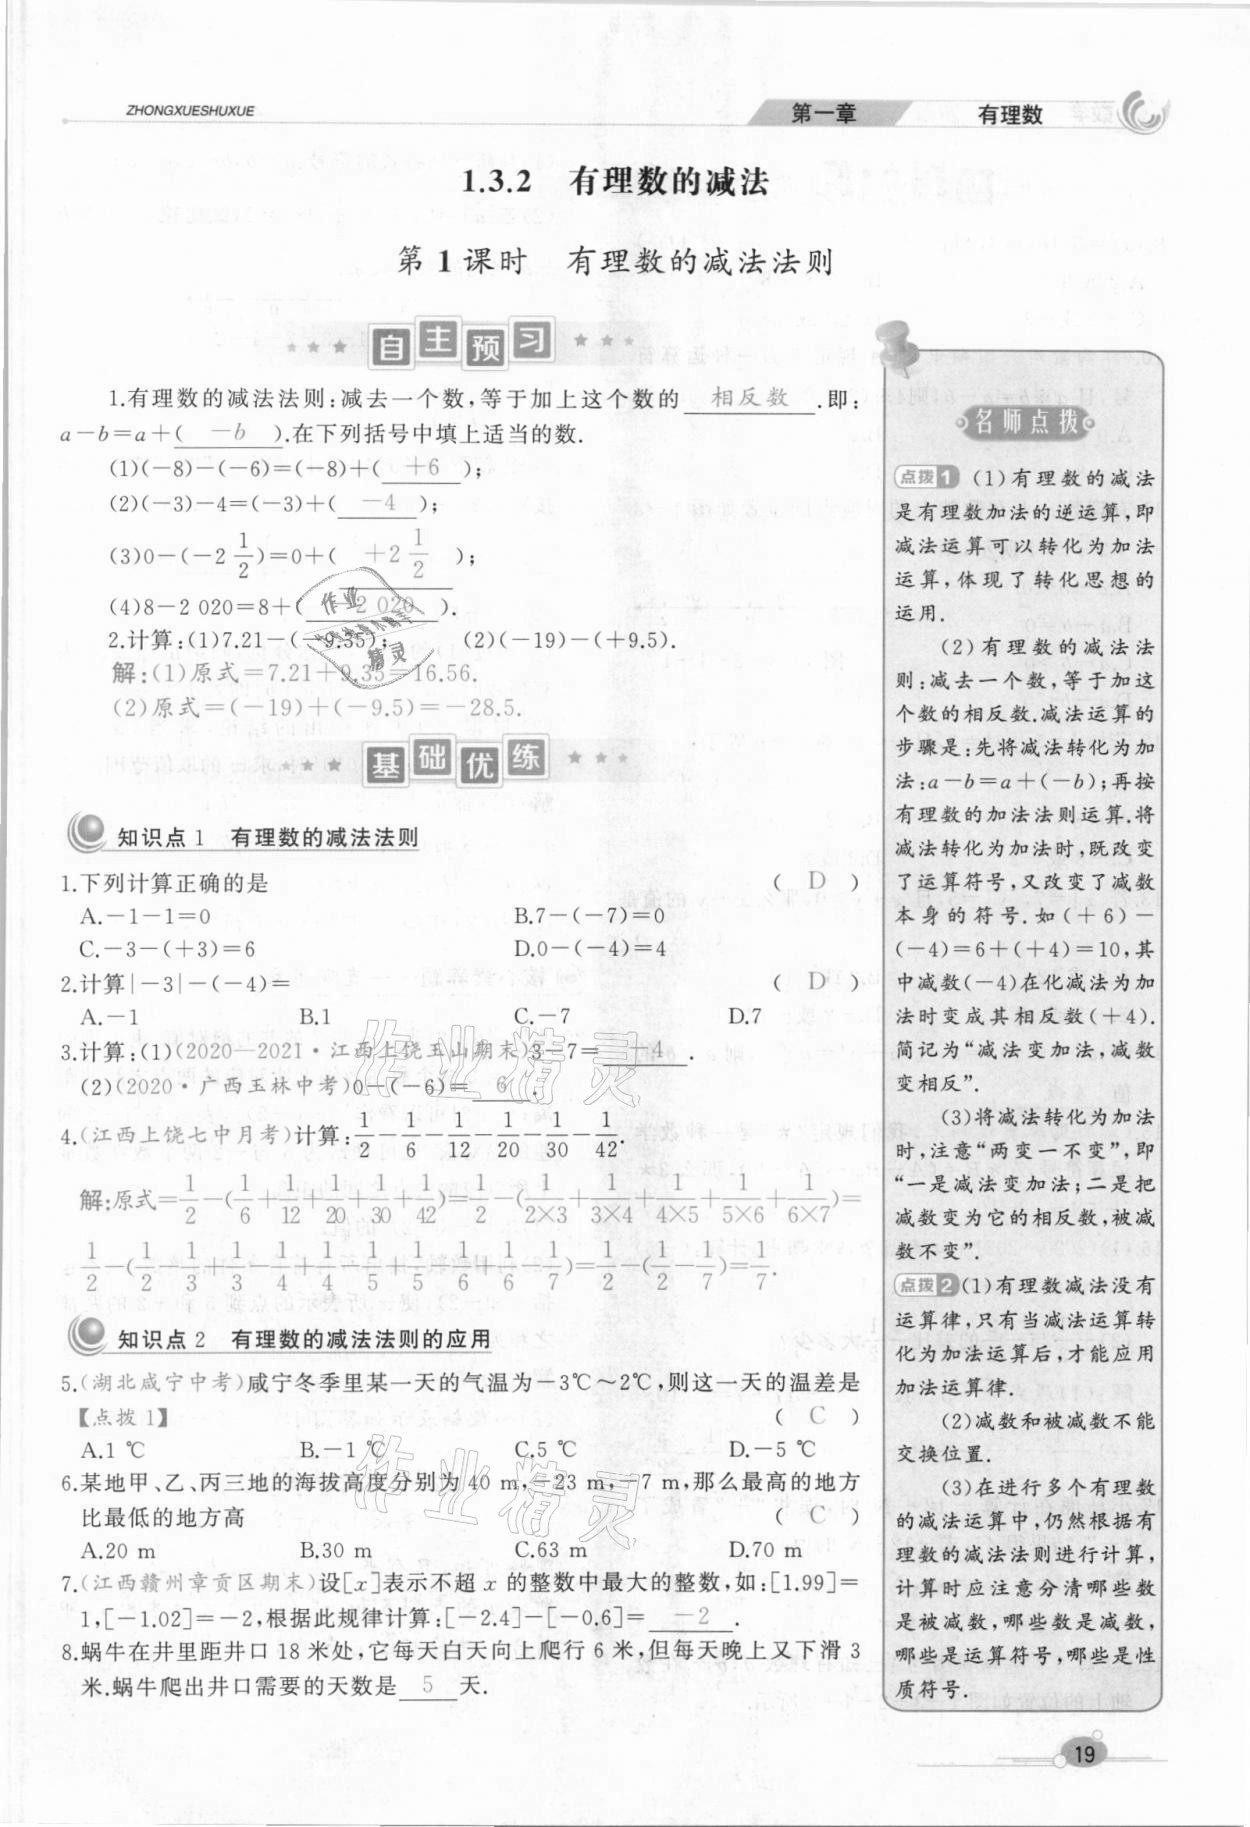 ZHONGXUESHUXUE
第一章 有理数
1.3.2 有理数的减法
第1课时 有理数的减法法则
★★★ 自主预习 ★★★
1.有理数的减法法则:减去一个数,等于加上这个数的 相反数 .即:
a-b=a+( -b ).在下列括号中填上适当的数.
(1)(-8)-(-6)=(-8)+( +6 );
(2)(-3)-4=(-3)+( -4 );
(3)0-(-2 1/2)=0+( +2 1/2 );
(4)8-2 020=8+( -2 020 ).
2.计算:(1)7.21-(-9.35); (2)(-19)-(+9.5).
解:(1)原式=7.21+9.35=16.56.
(2)原式=(-19)+(-9.5)=-28.5.
★★★ 基础优练 ★★★
知识点1 有理数的减法法则
1.下列计算正确的是 ( D )
A.-1-1=0 B.7-(-7)=0
C.-3-(+3)=6 D.0-(-4)=4
2.计算|-3|-(-4)= ( D )
A.-1 B.1 C.-7 D.7
3.计算:(1)(2020—2021·江西上饶玉山期末)3-7= -4 .
(2)(2020·广西玉林中考)0-(-6)= 6 .
4.(江西上饶七中月考)计算:1/2-1/6-1/12-1/20-1/30-1/42.
解:原式=1/2-(1/6+1/12+1/20+1/30+1/42)=1/2-(1/2×3+1/3×4+1/4×5+1/5×6+1/6×7)=
1/2-(1/2-1/3+1/3-1/4+1/4-1/5+1/5-1/6+1/6-1/7)=1/2-(1/2-1/7)=1/7.
知识点2 有理数的减法法则的应用
5.(湖北咸宁中考)咸宁冬季里某一天的气温为-3℃～2℃,则这一天的温差是
【点拨1】 ( C )
A.1 ℃ B.-1 ℃ C.5 ℃ D.-5 ℃
6.某地甲、乙、丙三地的海拔高度分别为40 m,-23 m,-7 m,那么最高的地方
比最低的地方高 ( C )
A.20 m B.30 m C.63 m D.70 m
7.(江西赣州章贡区期末)设[x]表示不超 x 的整数中最大的整数,如:[1.99]=
1,[-1.02]=-2,根据此规律计算:[-2.4]-[-0.6]= -2 .
8.蜗牛在井里距井口18米处,它每天白天向上爬行6米,但每天晚上又下滑3
米.蜗牛爬出井口需要的天数是 5 天.
名师点拨
点拨1 (1)有理数的减法
是有理数加法的逆运算,即
减法运算可以转化为加法
运算,体现了转化思想的
运用.
(2)有理数的减法法
则:减去一个数,等于加这
个数的相反数.减法运算的
步骤是:先将减法转化为加
法:a-b=a+(-b);再按
有理数的加法法则运算.将
减法转化为加法时,既改变
了运算符号,又改变了减数
本身的符号.如(+6)-
(-4)=6+(+4)=10,其
中减数(-4)在化减法为加
法时变成其相反数(+4).
简记为“减法变加法,减数
变相反”.
(3)将减法转化为加法
时,注意“两变一不变”,即
“一是减法变加法;二是把
减数变为它的相反数,被减
数不变”.
点拨2 (1)有理数减法没有
运算律,只有当减法运算转
化为加法运算后,才能应用
加法运算律.
(2)减数和被减数不能
交换位置.
(3)在进行多个有理数
的减法运算中,仍然根据有
理数的减法法则进行计算,
计算时应注意分清哪些数
是被减数,哪些数是减数,
哪些是运算符号,哪些是性
质符号.
19
作业精灵
作业精灵
作业
精灵